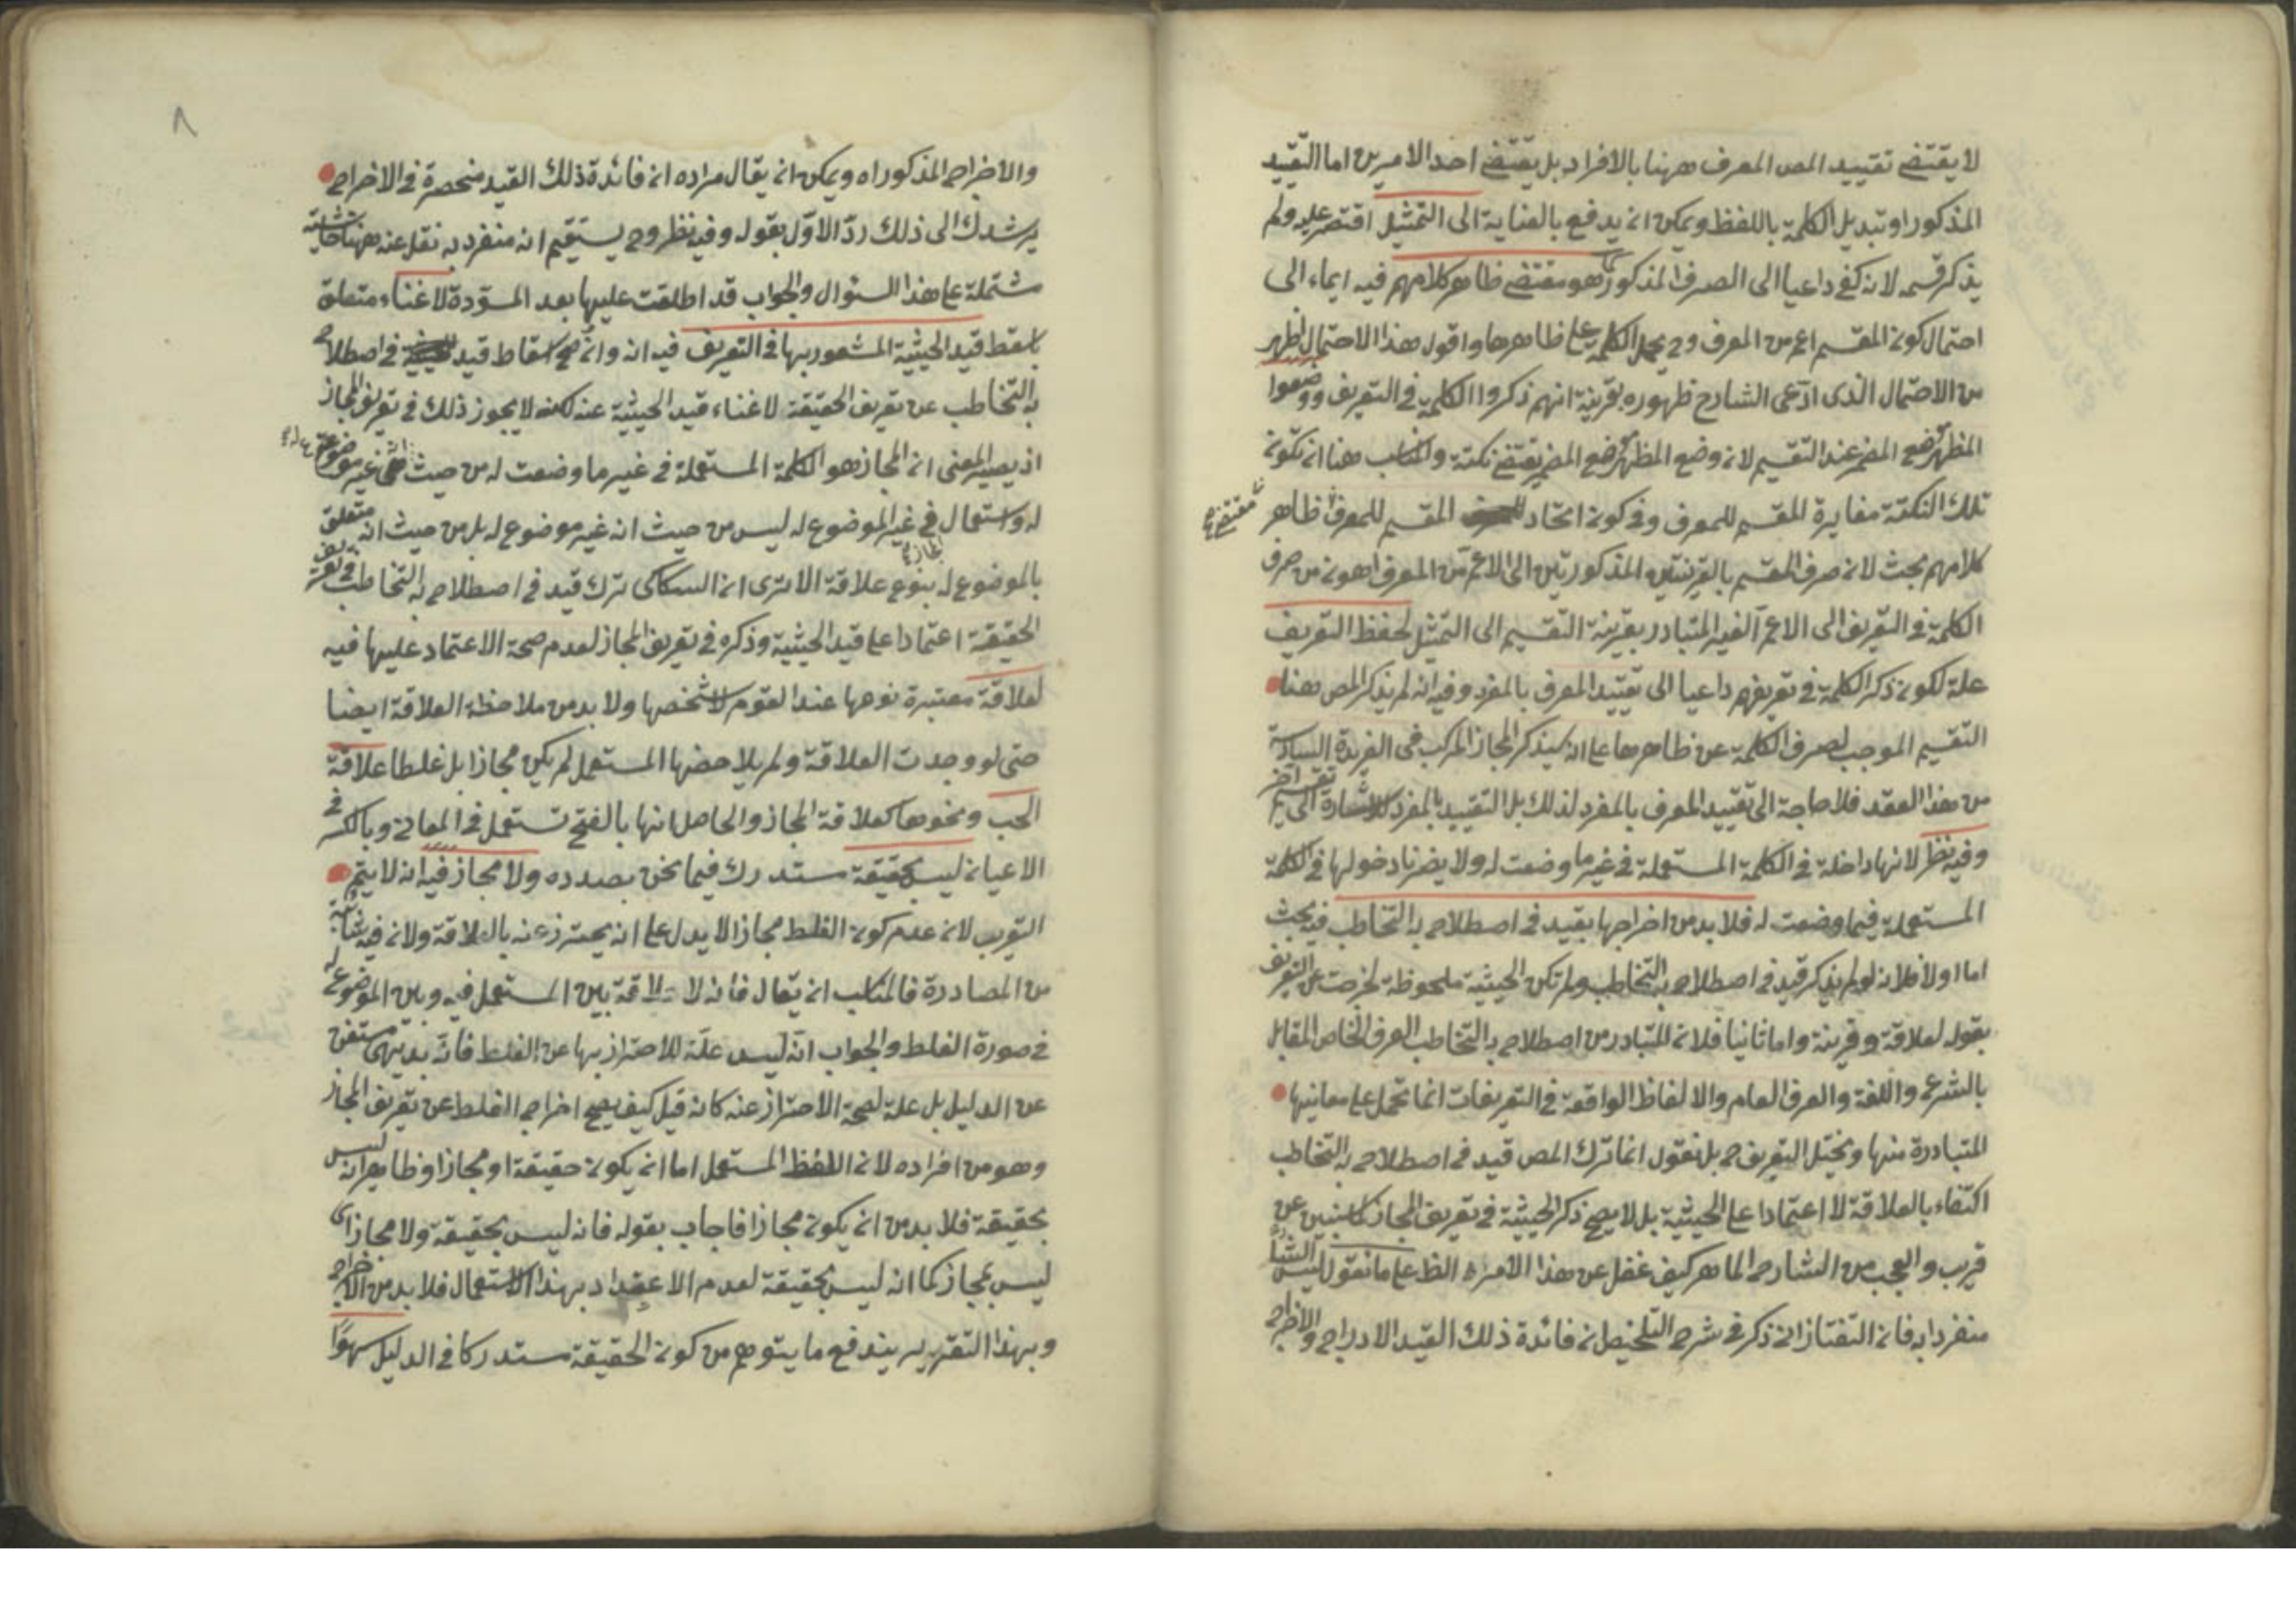 لا يقتضى تقييد المص المعرف ههنا بالافراد بل يقتضى احد الامرين اما التقييد
المذكور او تبديل الكلمة باللفظ ويمكن ان يدفع بالعناية الى التمثيل اقتصر عليه ولم
يذكر قسمه لانه كفى داعيا الى الصرف المذكور هو مقتضى ظاهر كلامهم فيه ايماء الى
احتمال كون المقسم اعم من المعرف وح يحمل الكلمة على ظاهرها واقول هذا الاحتمال اظهر
من الاحتمال الذى ادعى الشارح ظهوره بقرينة انهم ذكروا الكلمة في التعريف ووضعوا
المظهر موضع المضمر عند التقسيم لان وضع المظهر موضع المضمر يقتضى نكتة والمناسب هنا ان تكون
تلك النكتة مغايرة المقسم للمعرف وفي كون اتحاد المقسم للمعرف ظاهر
مقتضى
كلامهم بحث لان صرف المقسم بالقرينتين المذكورتين الى الاعم من المعرف اهون من صرف
الكلمة في التعريف الى الاعم الغير المتبادر بقرينة التقسيم الى التمثيل لحفظ التعريف
علة لكون ذكر الكلمة في تعريفهم داعيا الى تقييد المعرف بالمفرد وفيه انه لم يذكر المص هنا
التقسيم الموجب لصرف الكلمة عن ظاهرها على انه سيذكر المجاز المركب في الفريدة السادسة
من هذا العقد فلا حاجة الى تقييد المعرف بالمفرد لذلك بل التقييد بالمفرد للاشارة الى
وفيه نظر لانها داخلة في الكلمة المستعملة في غير ما وضعت له ولا يضرنا دخولها في الكلمة
المستعملة فيما وضعت له فلا بد من اخراجها بقيد في اصطلاح به التخاطب فيه بحث
اما اولا فلانه لو لم يذكر قيد في اصطلاح به التخاطب ولم تكن الحيثية ملحوظة لخرجت عن التعريف
بقوله لعلاقة وقرينة واما ثانيا فلان المتبادر من اصطلاح به التخاطب العرف الخاص المقابل
بالشرع واللغة والعرف العام والالفاظ الواقعة في التعريفات انما تحمل على معانيها
المتبادرة منها ويختل التعريف ح بل نقول انما ترك المص قيد في اصطلاح به التخاطب
اكتفاء بالعلاقة لا اعتمادا على الحيثية بل لا يصح ذكر الحيثية في تعريف المجاز كما سنبين عن
قريب والعجب من الشارح الماهر كيف غفل عن هذا الامر الظ على ما نقول ليس الشا
منفردا به فان التفتازانى ذكر في شرح التلخيص ان فائدة ذلك القيد الادراج والاخراج
٨
والاخراج المذكوران ويمكن ان يقال مراده ان فائدة ذلك القيد منحصرة في الاخراج
يرشدك الى ذلك ردّ الاوّل بقوله وفيه نظر وح يستقيم انه منفرد به نقل عنه ههنا حاشية
مشتملة على هذا السئوال والجواب قد اطلعت عليها بعد المسوّدة لاغناء متعلق
باسقط قيد الحيثية المشعور بها في التعريف فيه انه وان صح اسقاط قيد في اصطلاح
به التخاطب عن تعريف الحقيقة لاغناء قيد الحيثية عنه لكنه لا يجوز ذلك في تعريف المجاز
اذ يصير المعنى ان المجاز هو الكلمة المستعملة في غير ما وضعت له من حيث انها غير موضوعة
له واستعمال في غير الموضوع له ليس من حيث انه غير موضوع له بل من حيث انه متعلق
بالموضوع له بنوع علاقة الا ترى ان السكاكى ترك قيد في اصطلاح به التخاطب في تعريف
الحقيقة اعتمادا على قيد الحيثية وذكره في تعريف المجاز لعدم صحة الاعتماد عليها فيه
لعلاقة معتبرة نوعها عند القوم لا شخصها ولا بد من ملاحظة العلاقة ايضا
حتى لو وجدت العلاقة ولم يلاحضها المستعمل لم يكن مجازا بل غلطا علاقة
الحب ونحوها كعلاقة المجاز والحاصل انها بالفتح تستعمل في المعانى وبالكسر في
الاعيان ليس بحقيقة مستدرك فيما نحن بصدده ولا مجاز فيه انه لا يتم
التقريب لان عدم كون الغلط مجازا لا يدل على انه يحترز عنه بالعلاقة ولان فيه شائبة
من المصادرة فالمناسب ان يقال فانه لا علاقة بين المستعمل فيه وبين الموضوع له
في صورة الغلط والجواب انه ليس علة للاحتراز بها عن الغلط فانه بديهى مستغن
عن الدليل بل علة لصحة الاحتراز عنه كانه قيل كيف يصح اخراج الغلط عن تعريف المجاز
وهو من افراده لان اللفظ المستعمل اما ان يكون حقيقة او مجازا وظاهر انه ليس
بحقيقة فلا بد من ان يكون مجازا فاجاب بقوله فانه ليس بحقيقة ولا مجاز اى
ليس بمجاز كما انه ليس بحقيقة لعدم الاعتداد بهذا الاستعمال فلا بد من الاخراج
وبهذا التقرير يندفع ما يتوهم من كون الحقيقة مستدركا في الدليل سهوًا